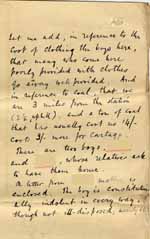 Let me add, in reference to the
cost of clothing the boys here,
that many who come here
poorly provided with clothes
go away well provided. And
in reference to coal, that we
are 3 miles from the station
and a ton of coal
that has usually cost us 14/-
cost 3/- more for cartage.
There are two boys,
and , whose relatives ask
to have them home.
A letter from mother is
enclosed. The boy is constitution-
ally indolent in every way,
though not ill-disposed,